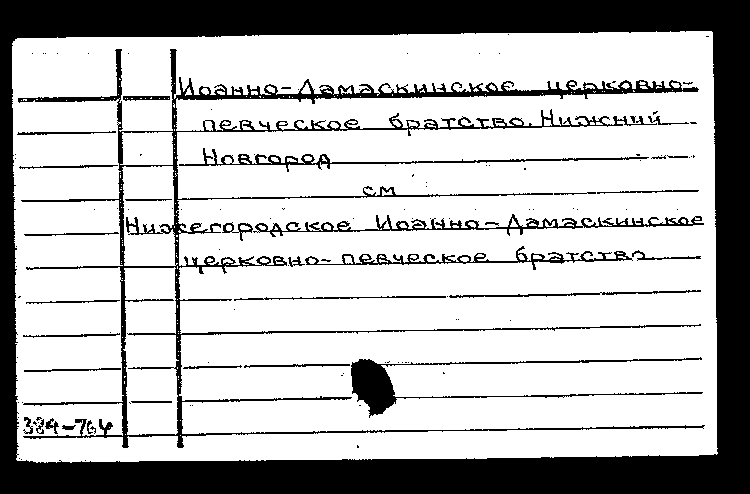 Иоанно-Дамаскинское церковно-
певческое братство. Нижний
Новгород
см
Нижегородское Иоанно-Дамаскинское
церковно-певческое братство
384-764